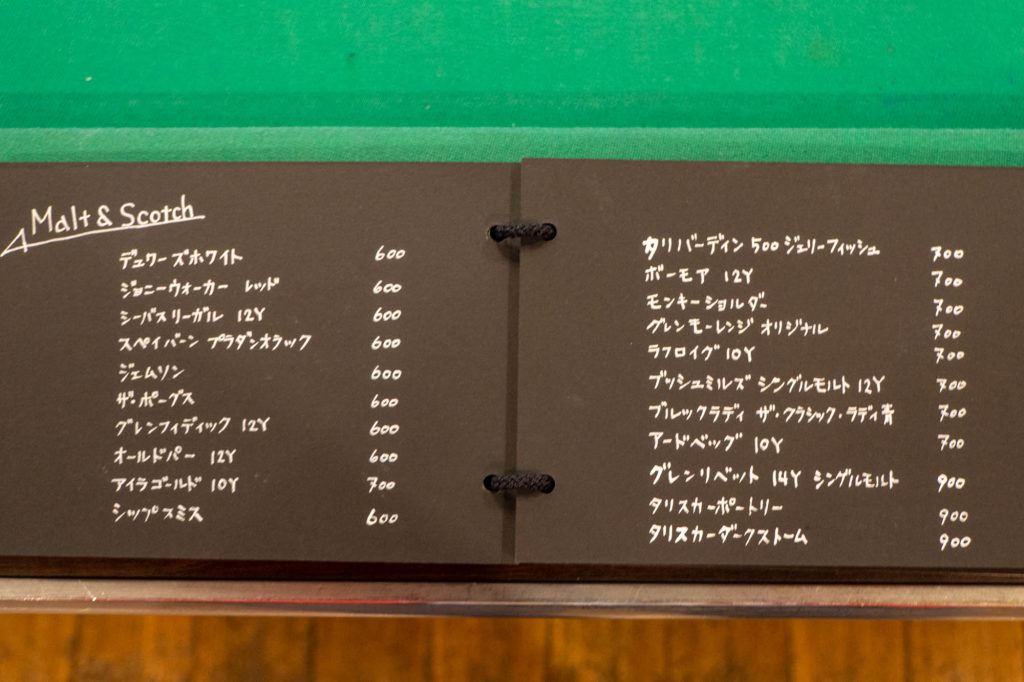 Malt & Scotch
デュワーズホワイト 600
ジョニーウォーカー レッド 600
シーバスリーガル 12Y 600
スペイバーン ブラダンオラック 600
ジェムソン 600
ザ・ポーグス 600
グレンフィディック 12Y 600
オールドパー 12Y 600
アイラゴールド 10Y 700
シップスミス 600
タリバーディン 500 ジェリーフィッシュ 700
ボーモア 12Y 700
モンキーショルダー 700
グレンモーレンジ オリジナル 700
ラフロイグ 10Y 700
ブッシュミルズ シングルモルト 12Y 700
ブルックラディ ザ・クラシック・ラディ青 700
アードベッグ 10Y 700
グレンリベット 14Y シングルモルト 900
タリスカーポートリー 900
タリスカーダークストーム 900